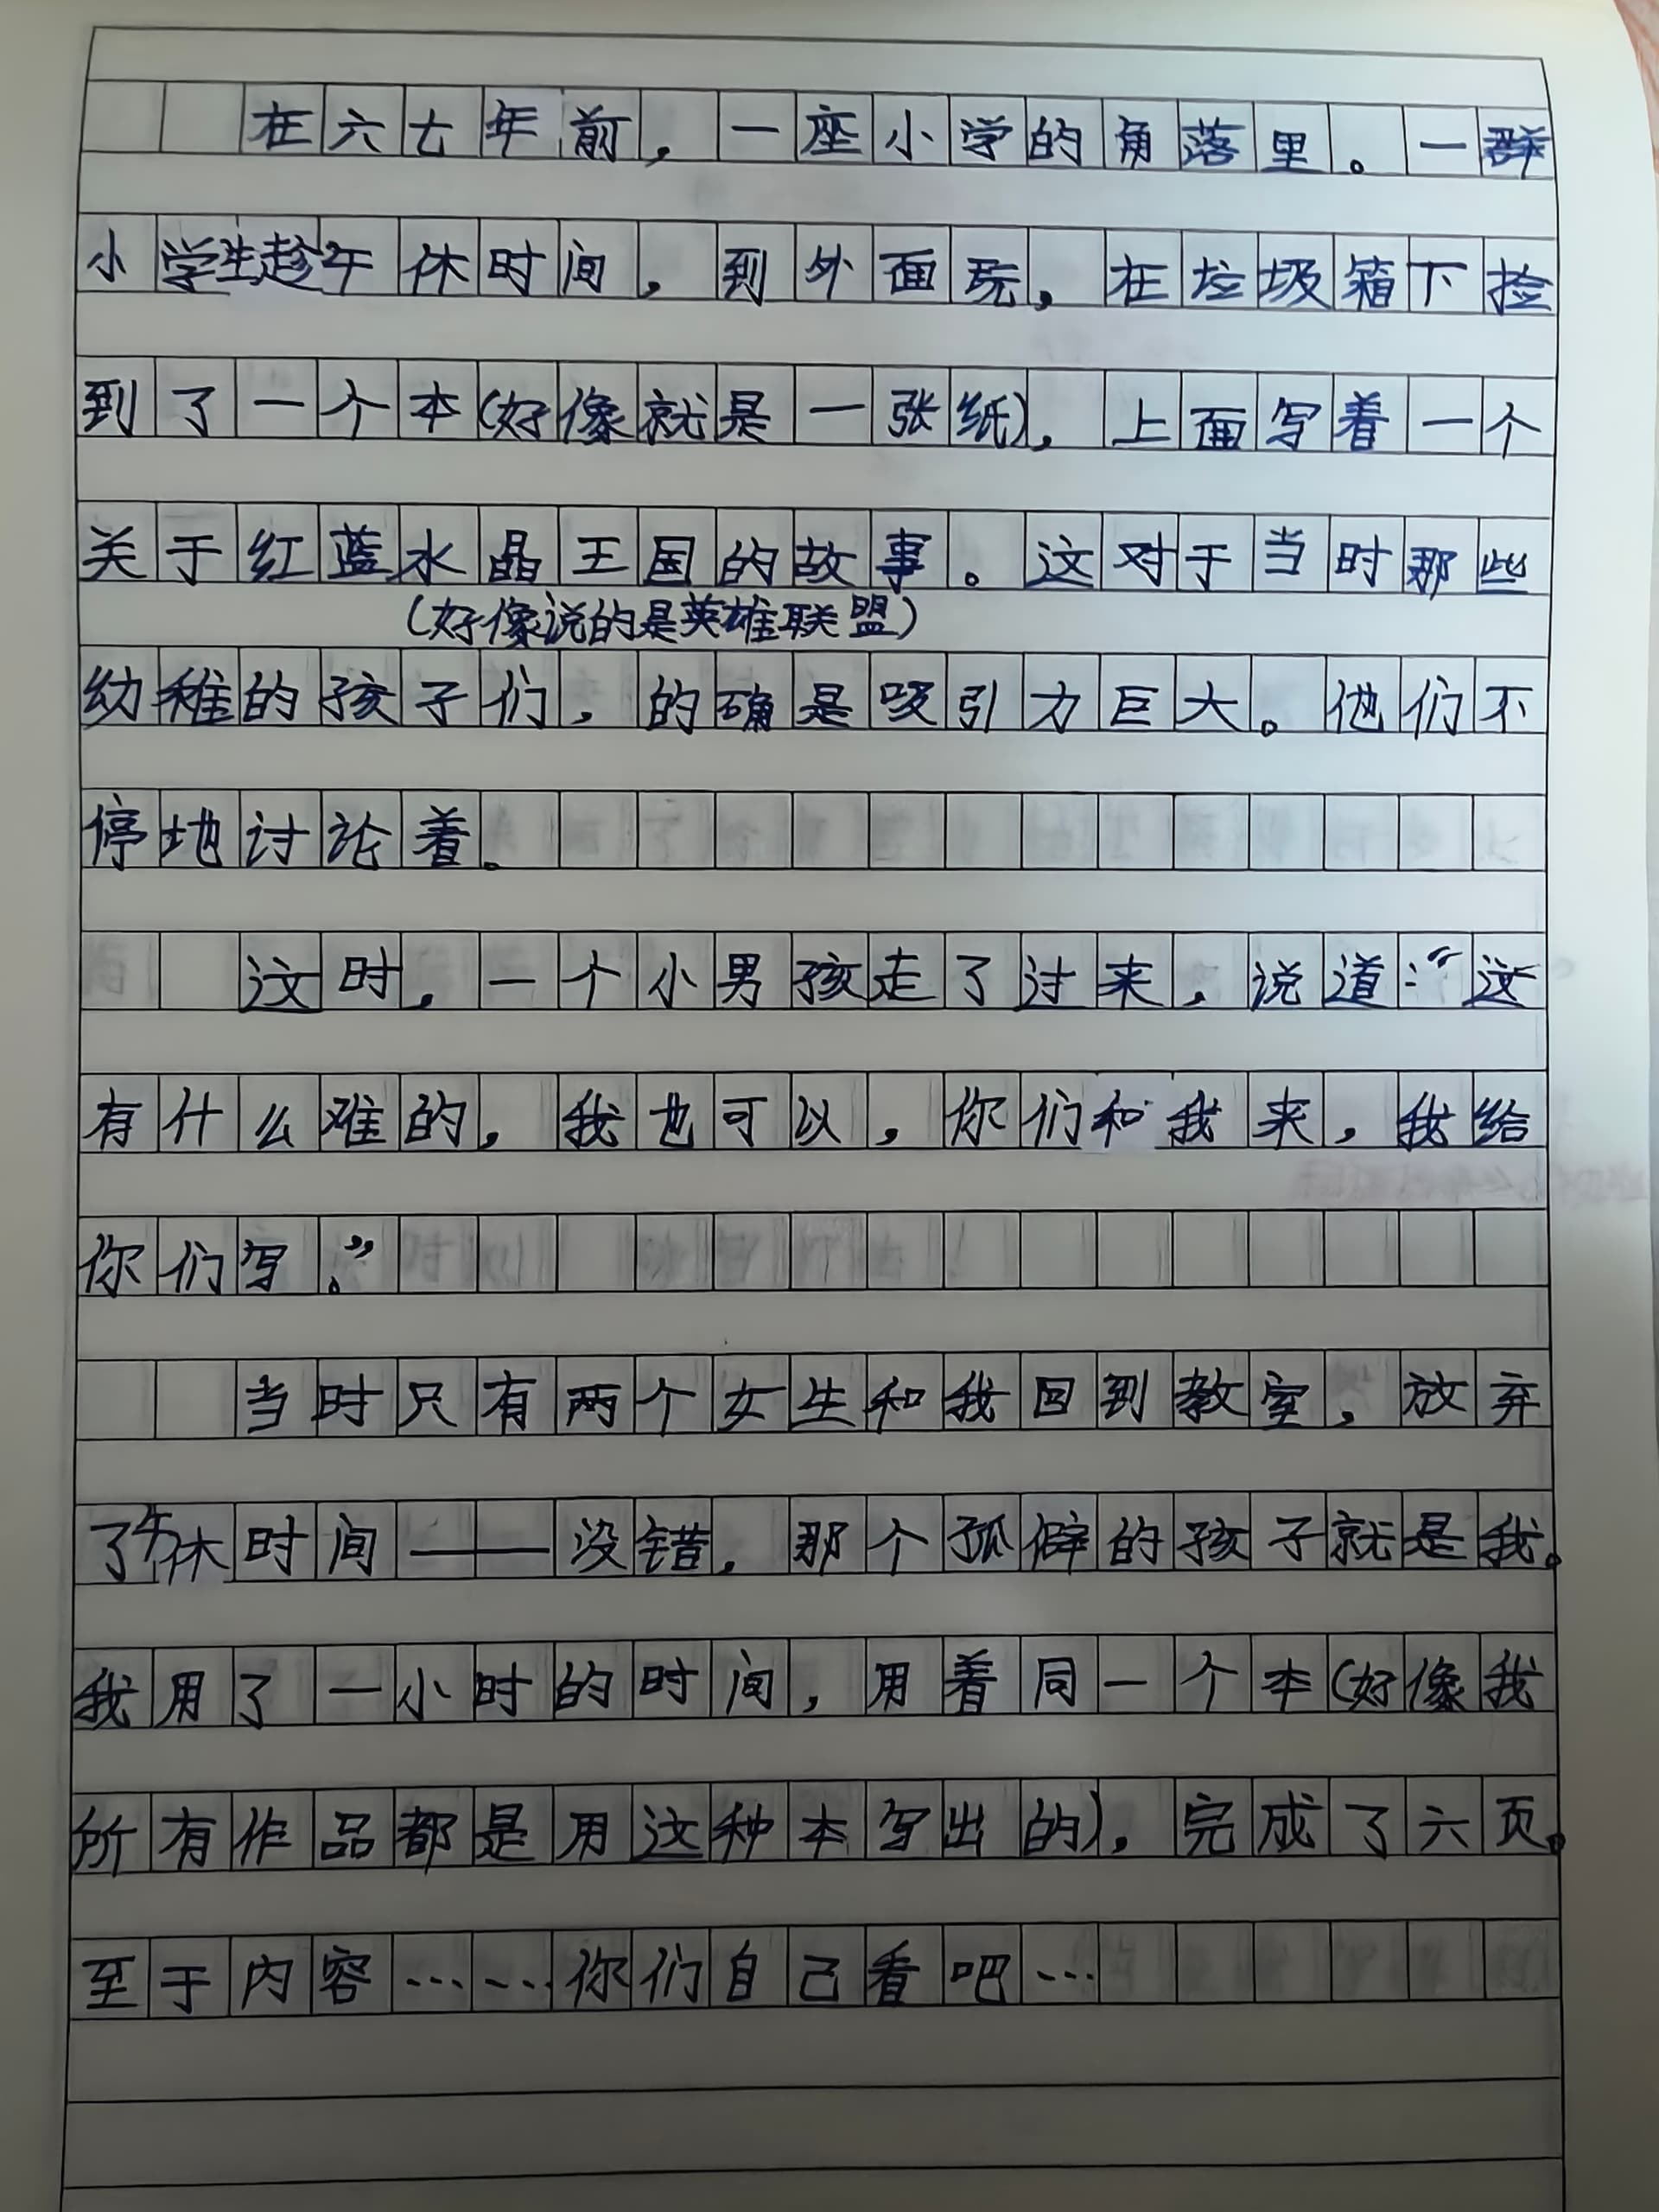 在六七年前，一座小学的角落里。一群
小学生趁午休时间，到外面玩，在垃圾箱下捡
到了一个本(好像就是一张纸)，上面写着一个
关于红蓝水晶王国的故事。这对于当时那些
(好像说的是英雄联盟)
幼稚的孩子们，的确是吸引力巨大。他们不
停地讨论着。
这时，一个小男孩走了过来，说道：“这
有什么难的，我也可以，你们和我来，我给
你们写。”
当时只有两个女生和我回到教室，放弃
了午休时间——没错，那个孤僻的孩子就是我。
我用了一小时的时间，用着同一个本(好像我
所有作品都是用这种本写出的)，完成了六页。
至于内容……你们自己看吧…